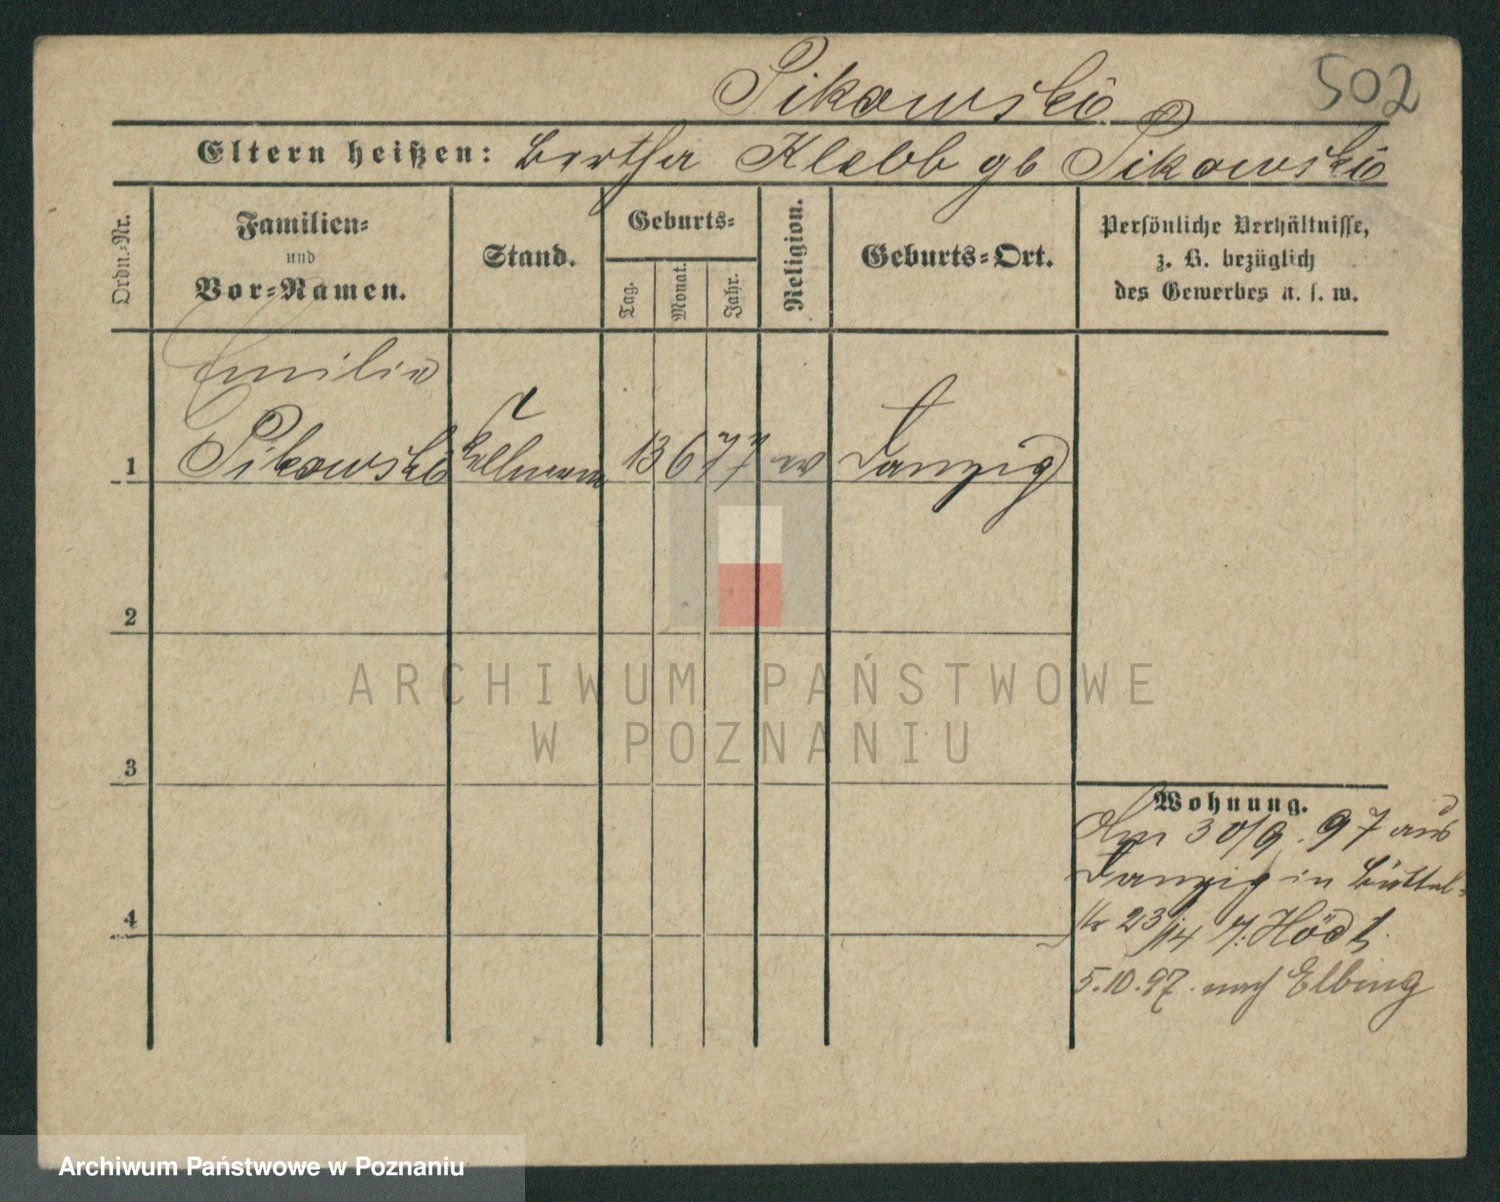 502
Sikowski
Eltern heißen: Bertha Klebb gb Sikowski
Ordn.-Nr.
Familien-
und
Vor-Namen.
Stand.
Geburts-
Tag.
Monat.
Jahr.
Religion.
Geburts-Ort.
Persönliche Verhältnisse,
z. B. bezüglich
des Gewerbes u. s. w.
Emilie
1 Sikowski Kellnerin 13 6 77 ev Danzig
2
3
4
Wohnung.
Am 30/9. 97 aus
Danzig in Büttel-
str 23/14
5.10.97. nach Elbing
ARCHIWUM PAŃSTWOWE
W POZNANIU
Archiwum Państwowe w Poznaniu